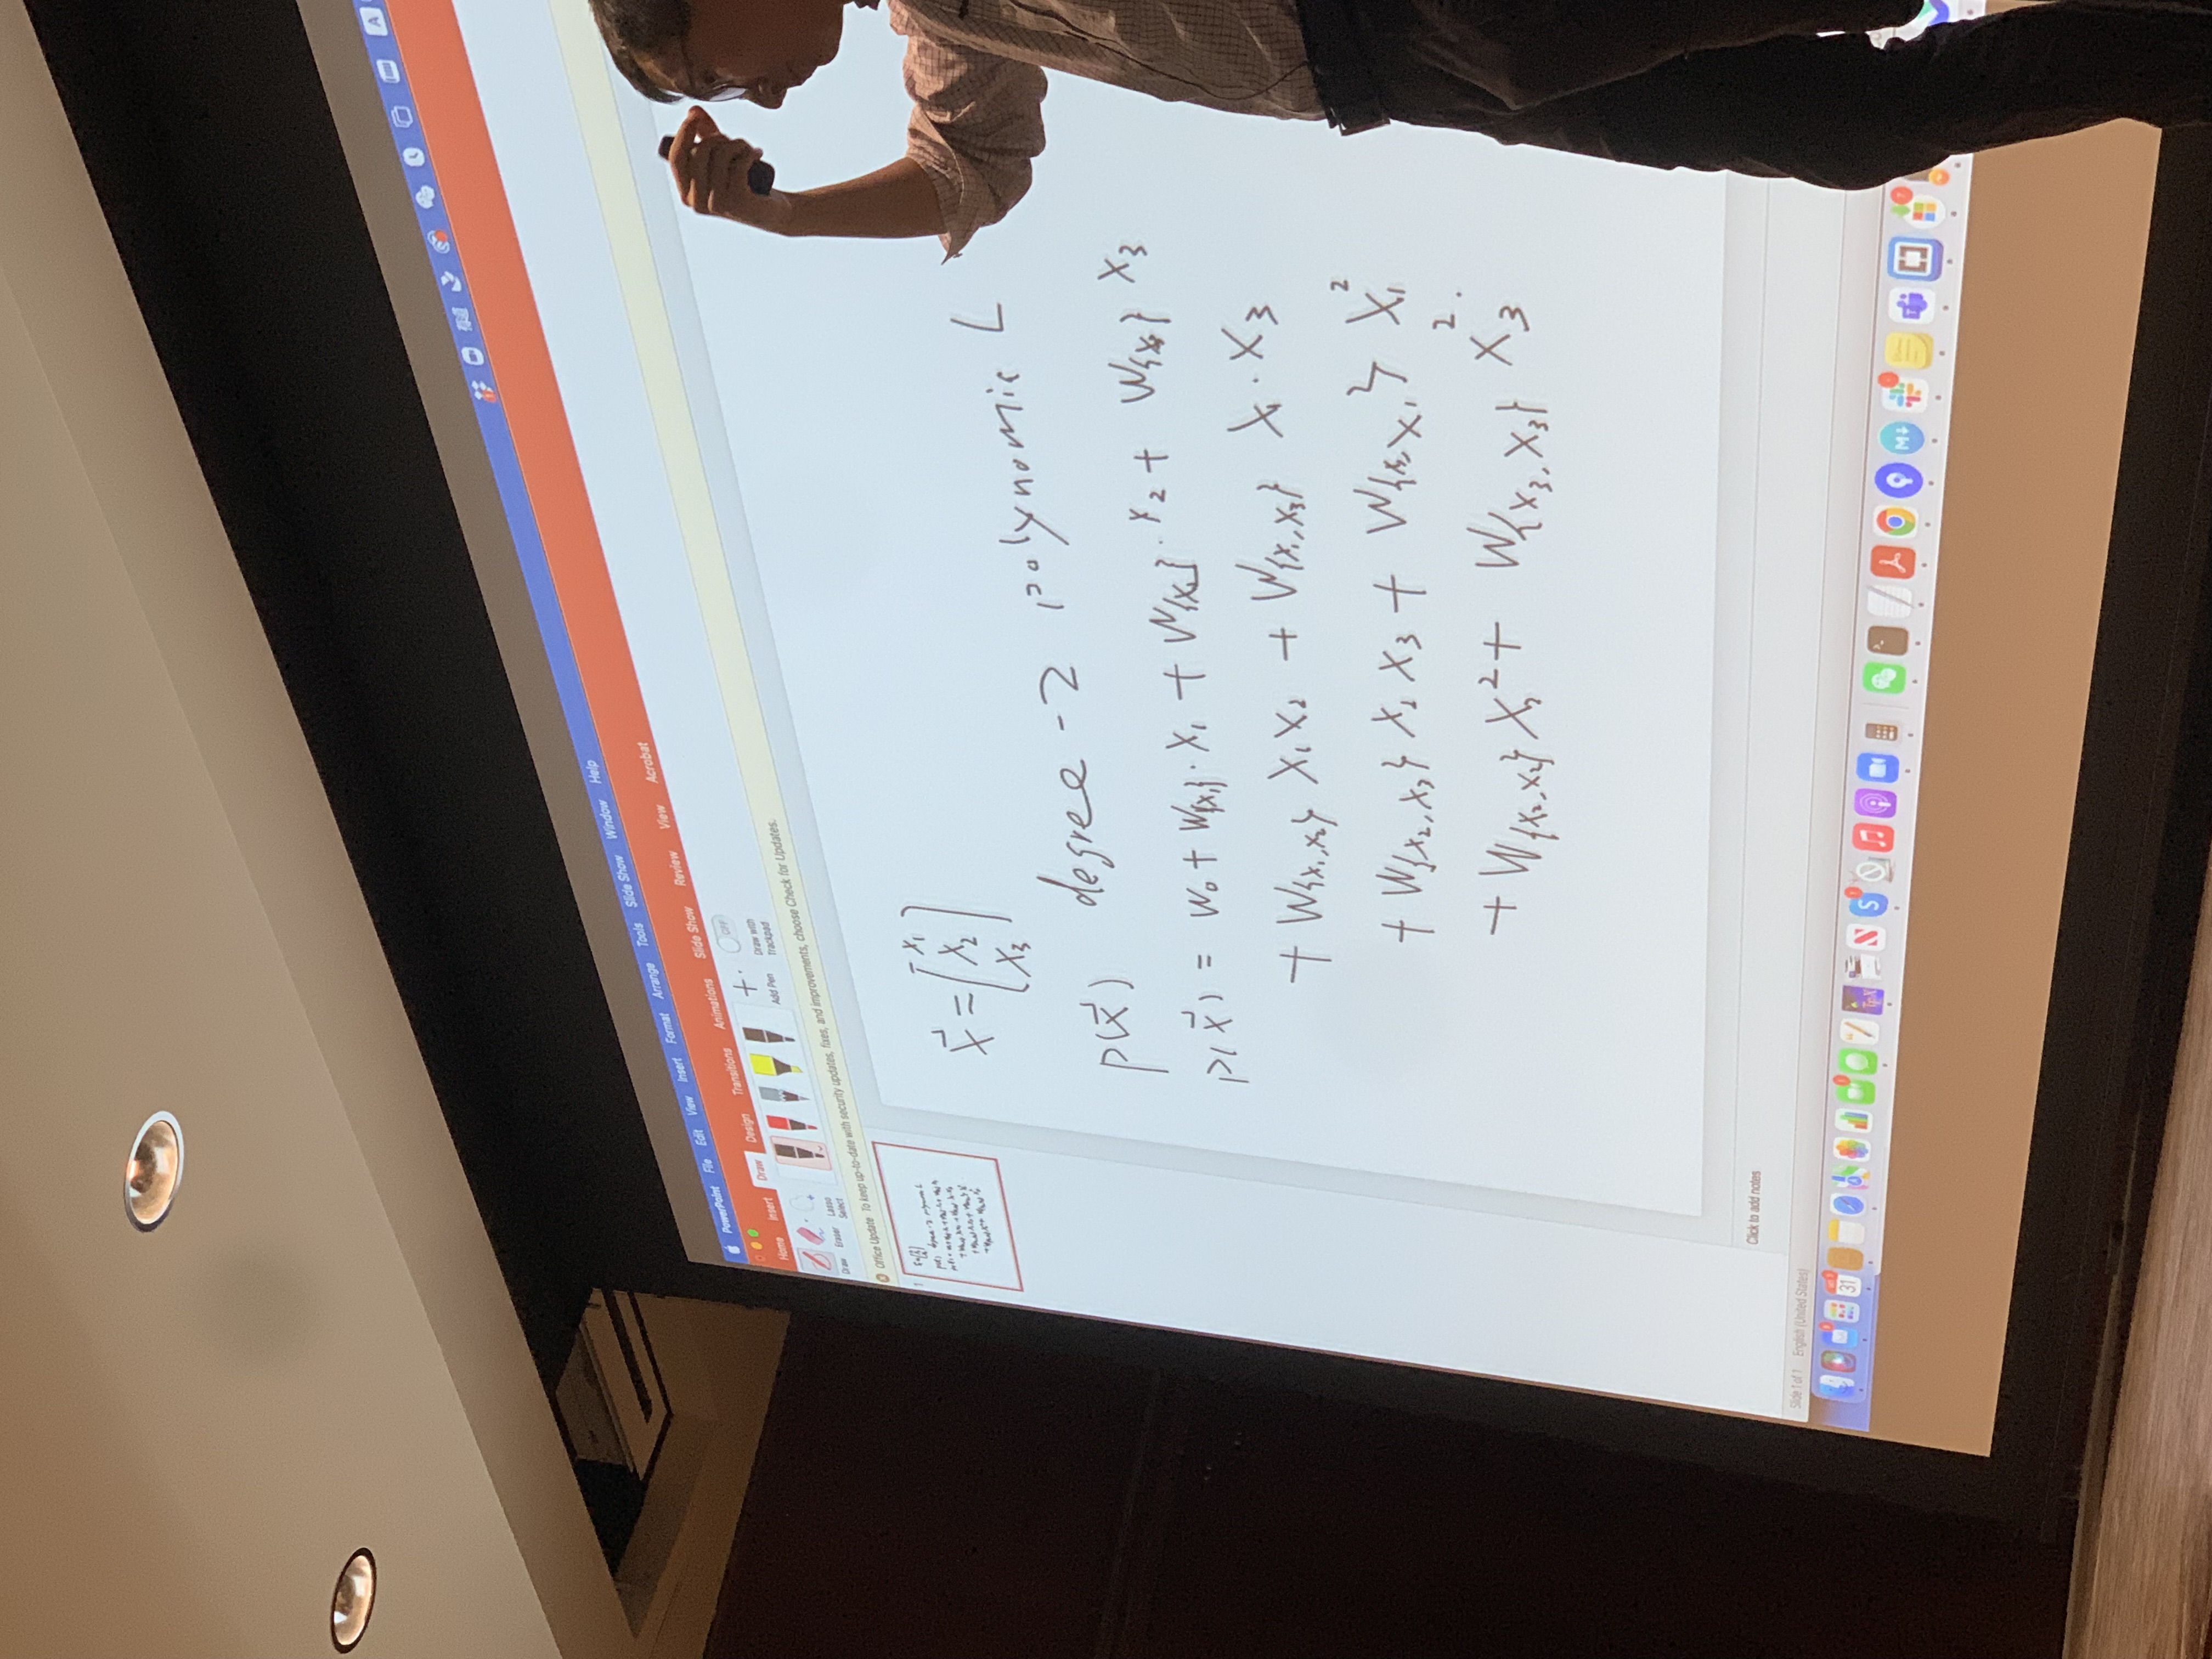 PowerPoint File Edit View Insert Format Arrange Tools Slide Show Window Help
A
Home Insert Draw Design Transitions Animations Slide Show Review View Acrobat
Draw Eraser Lasso Select Add Pen OFF Draw with Trackpad
Office Update To keep up-to-date with security updates, fixes, and improvements, choose Check for Updates.
1
x⃗ = [x₁
x₂
x₃]
p(x⃗) degree-2 polynomial
p(x⃗) = w₀ + w{x₁}·x₁ + w{x₂}·x₂ + w{x₃} x₃
+ w{x₁,x₂} x₁x₂ + w{x₁,x₃} x₁·x₃
+ w{x₂,x₃} x₂x₃ + w{x₁,x₁} x₁²
+ w{x₂,x₂} x₂² + w{x₃,x₃} x₃².
Click to add notes
Slide 1 of 1 English (United States)
31